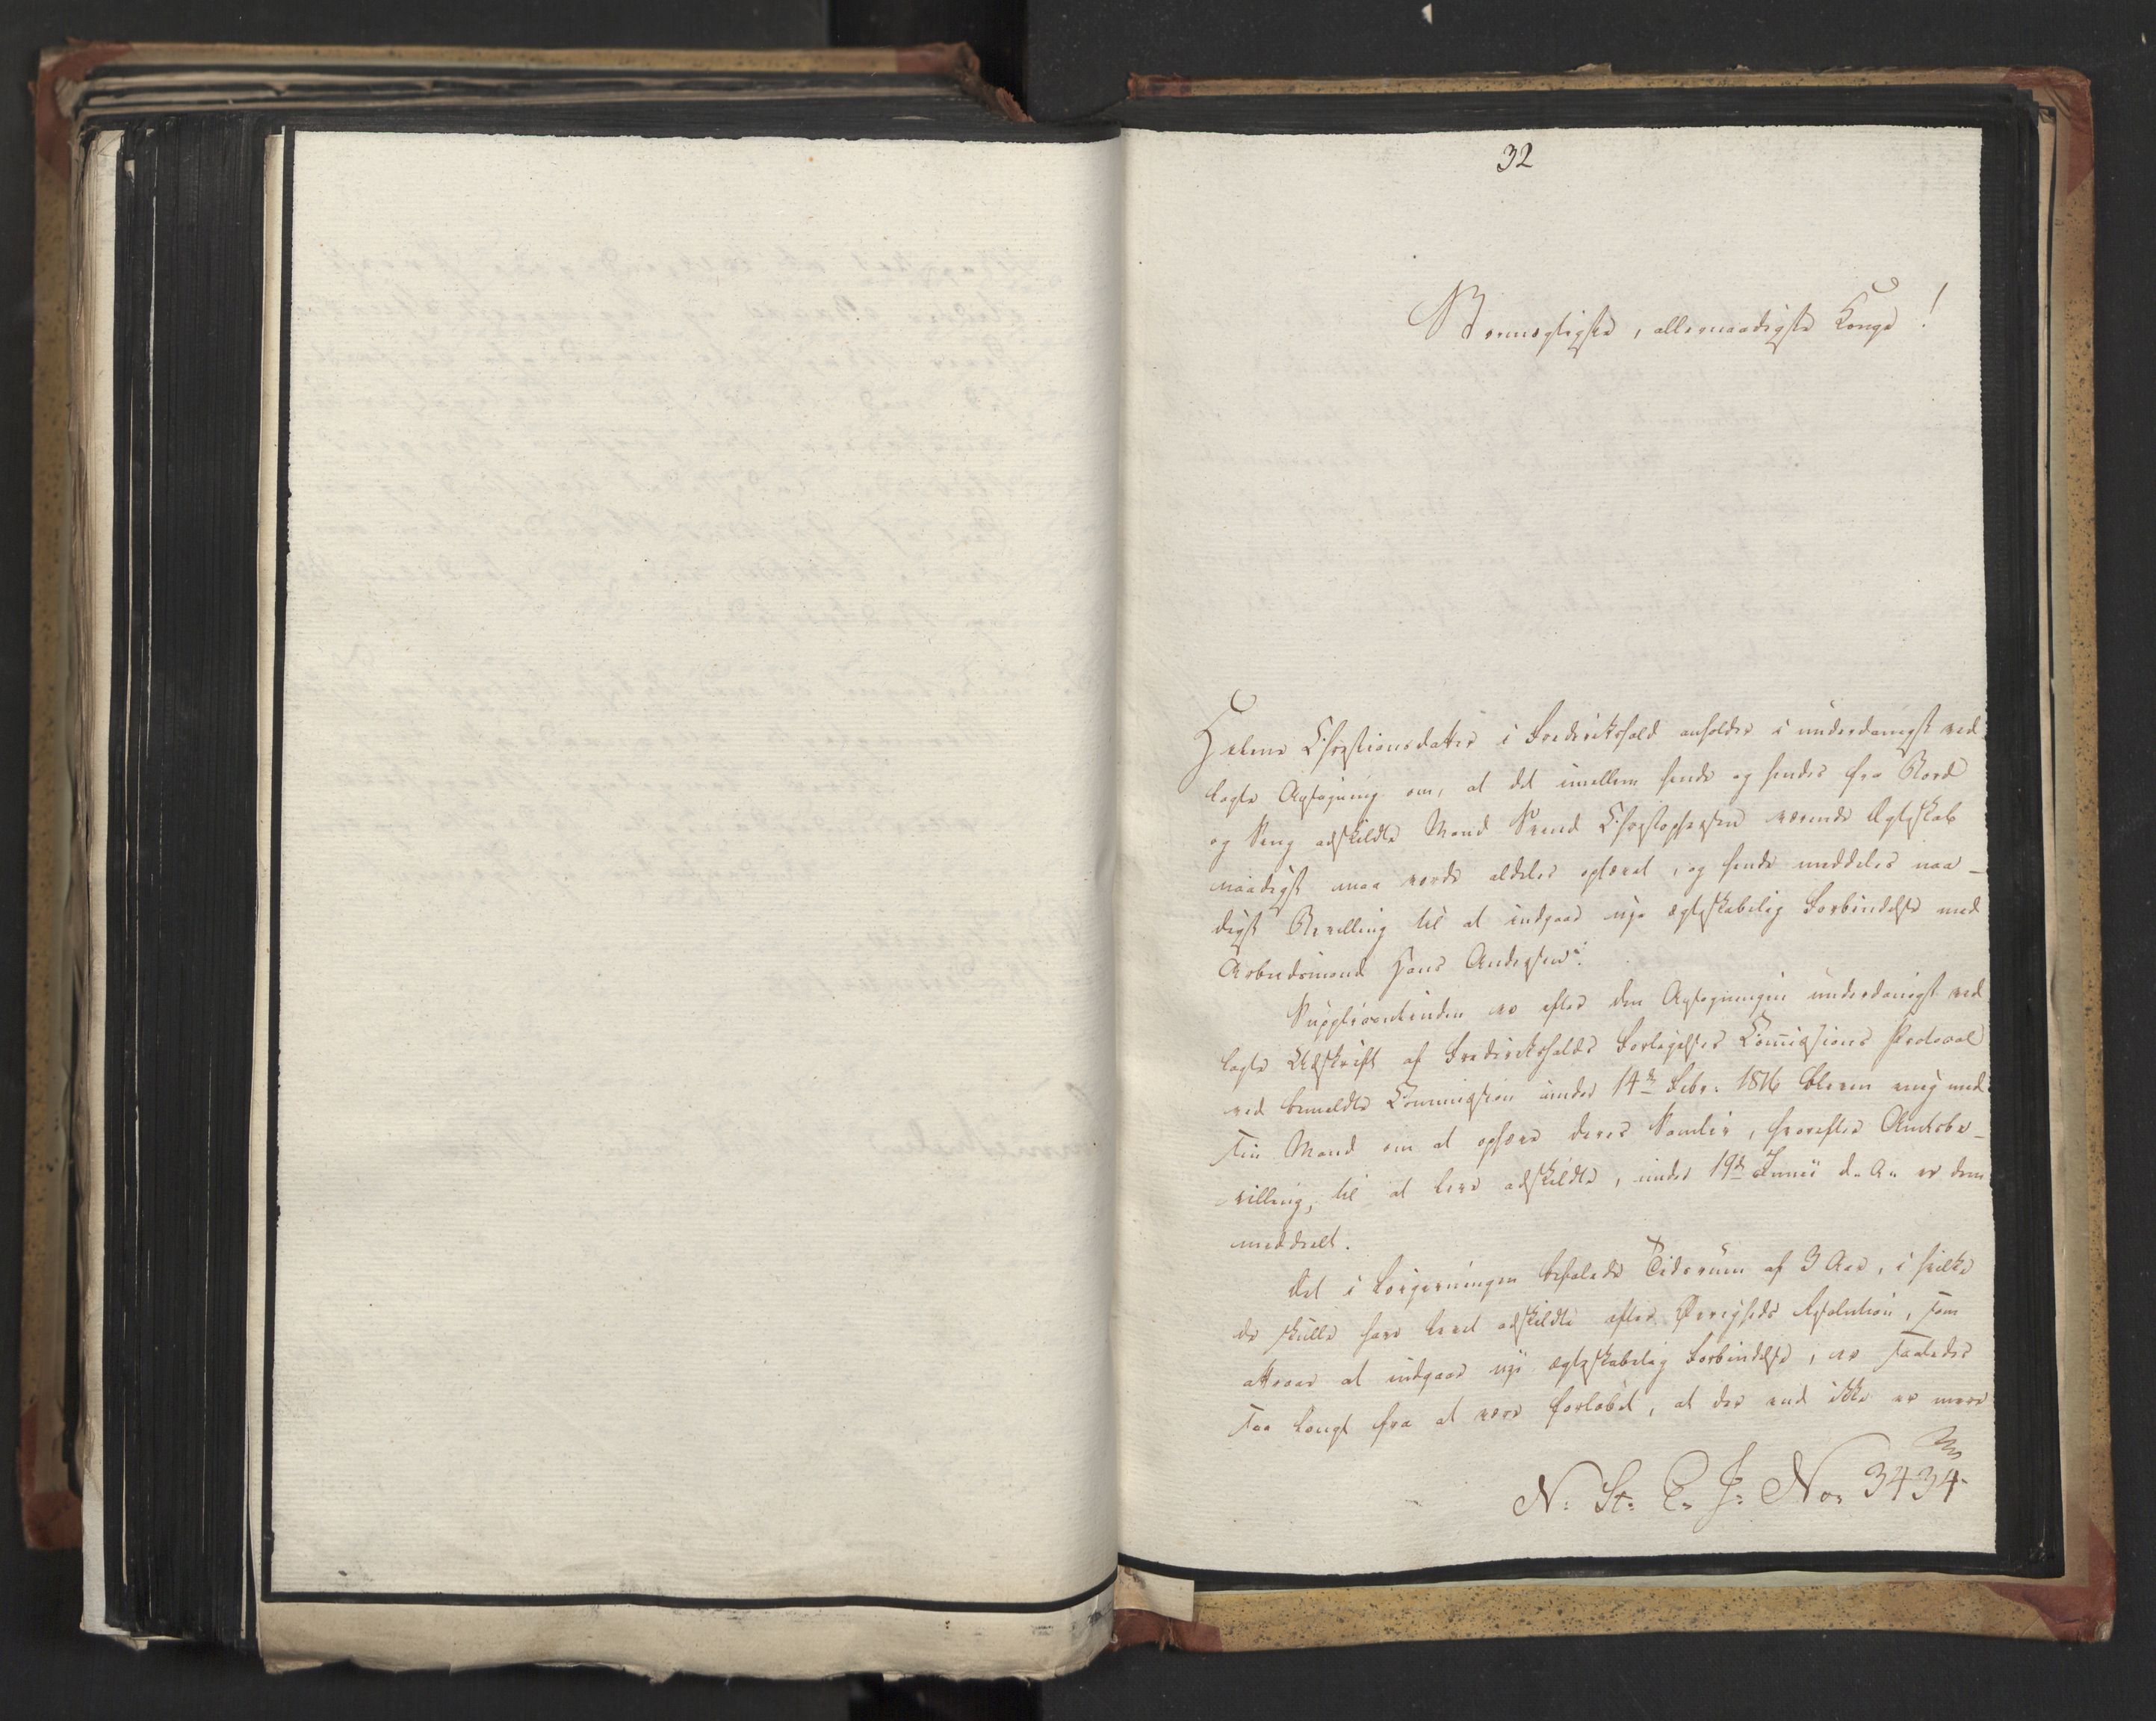 32
Stormægtigste, allernaadigste Konge!
Helene Christiansdatter i Fredrikshald anholder i underdanigst ved
lagte Ansøgning om, at det imellem hende og hendes fra Bord
og Seng adskildte Mand Svend Christophersen værende Ægteskab
naadigst maa vorde aldeles ophævet, og hende meddeles naa-
digst Bevilling til at indgaae nye ægteskabelig Forbindelse med
Arbeidsmand Hans Andersen.
Supplicantinden er efter den Ansøgningen underdanigst ved
lagte Udskrift af Fredrikshalds Forligelses Commissions Protocol
ved bemeldte Commission under 14de Febr: 1816 bleven enig med
sin Mand om at ophæve deres Samliv, hvorefter Amtsbe-
villing, til at leve adskildte, under 19de Junii d. A. er dem
meddeelt.
Det i Lovgivningen befalede Tidsrum af 3 Aar, i hvilke
de skulle have levet adskildte efter Øvrigheds Resolution, som
attraae at indgaae nye ægteskabelig Forbindelse, er saaledes
saa langt fra at være forløbet, at der end ikke er mere
N: St: E: J: No: 3434